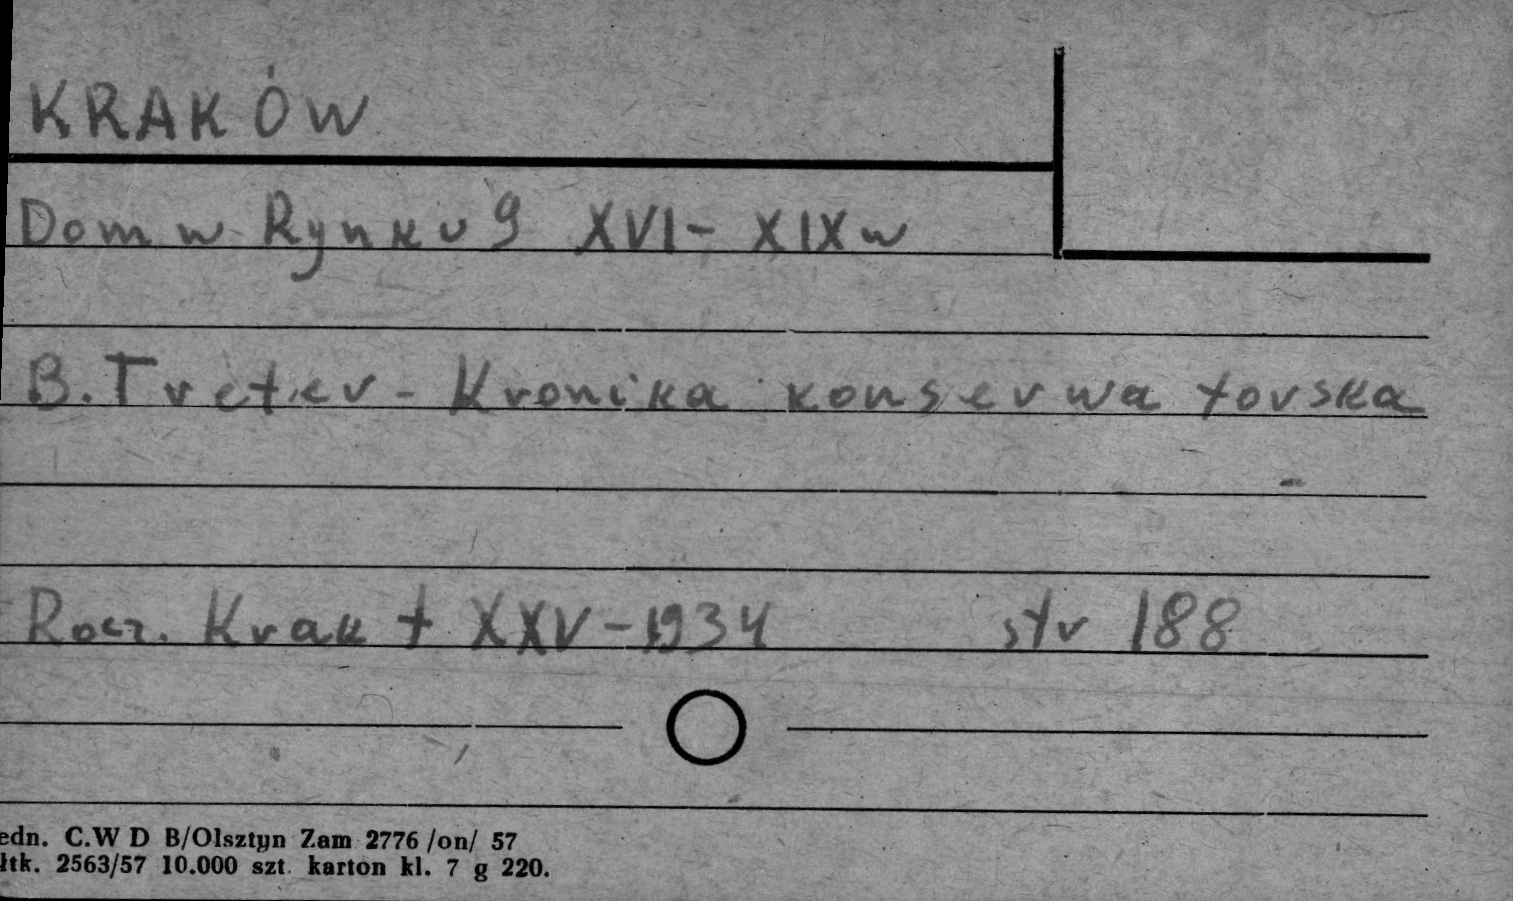 KRAKÓW
Dom w Rynku 9 XVI - XIX w
B. Treter - Kronika konserwatorska
Rocz. Krak t XXV - 1934 str 188
edn. C.W D B/Olsztyn Zam 2776 /on/ 57
łtk. 2563/57 10.000 szt. karton kl. 7 g 220.